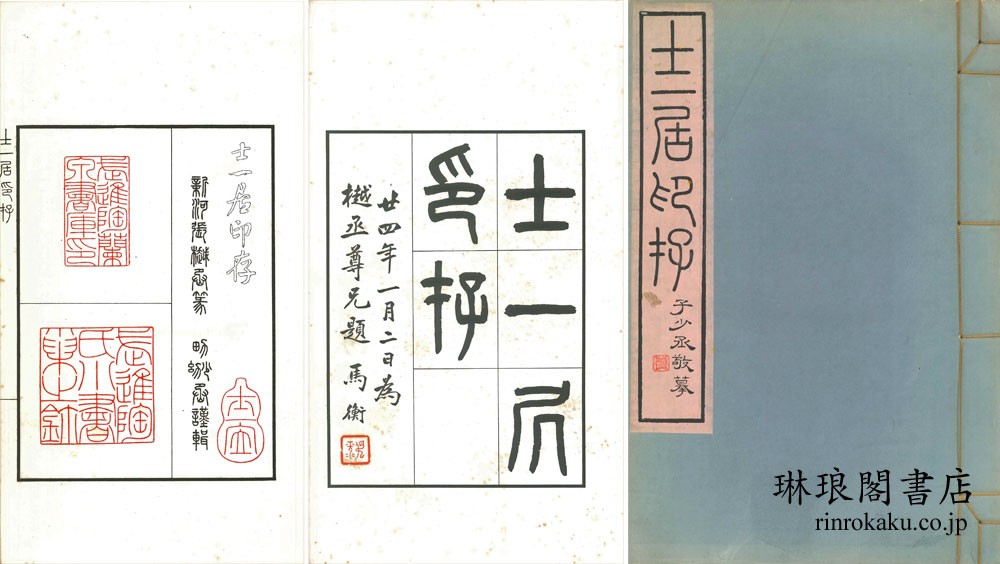 士一居印存
子少丞敬摹
士一居
印存
廿四年一月二日為
樾丞尊兄題 馬衡
士一居印存
新河張樾丞篆 男丞謹輯
武進陶蘭
泉書庫印
士一居印存
琳琅閣書店
rinrokaku.co.jp